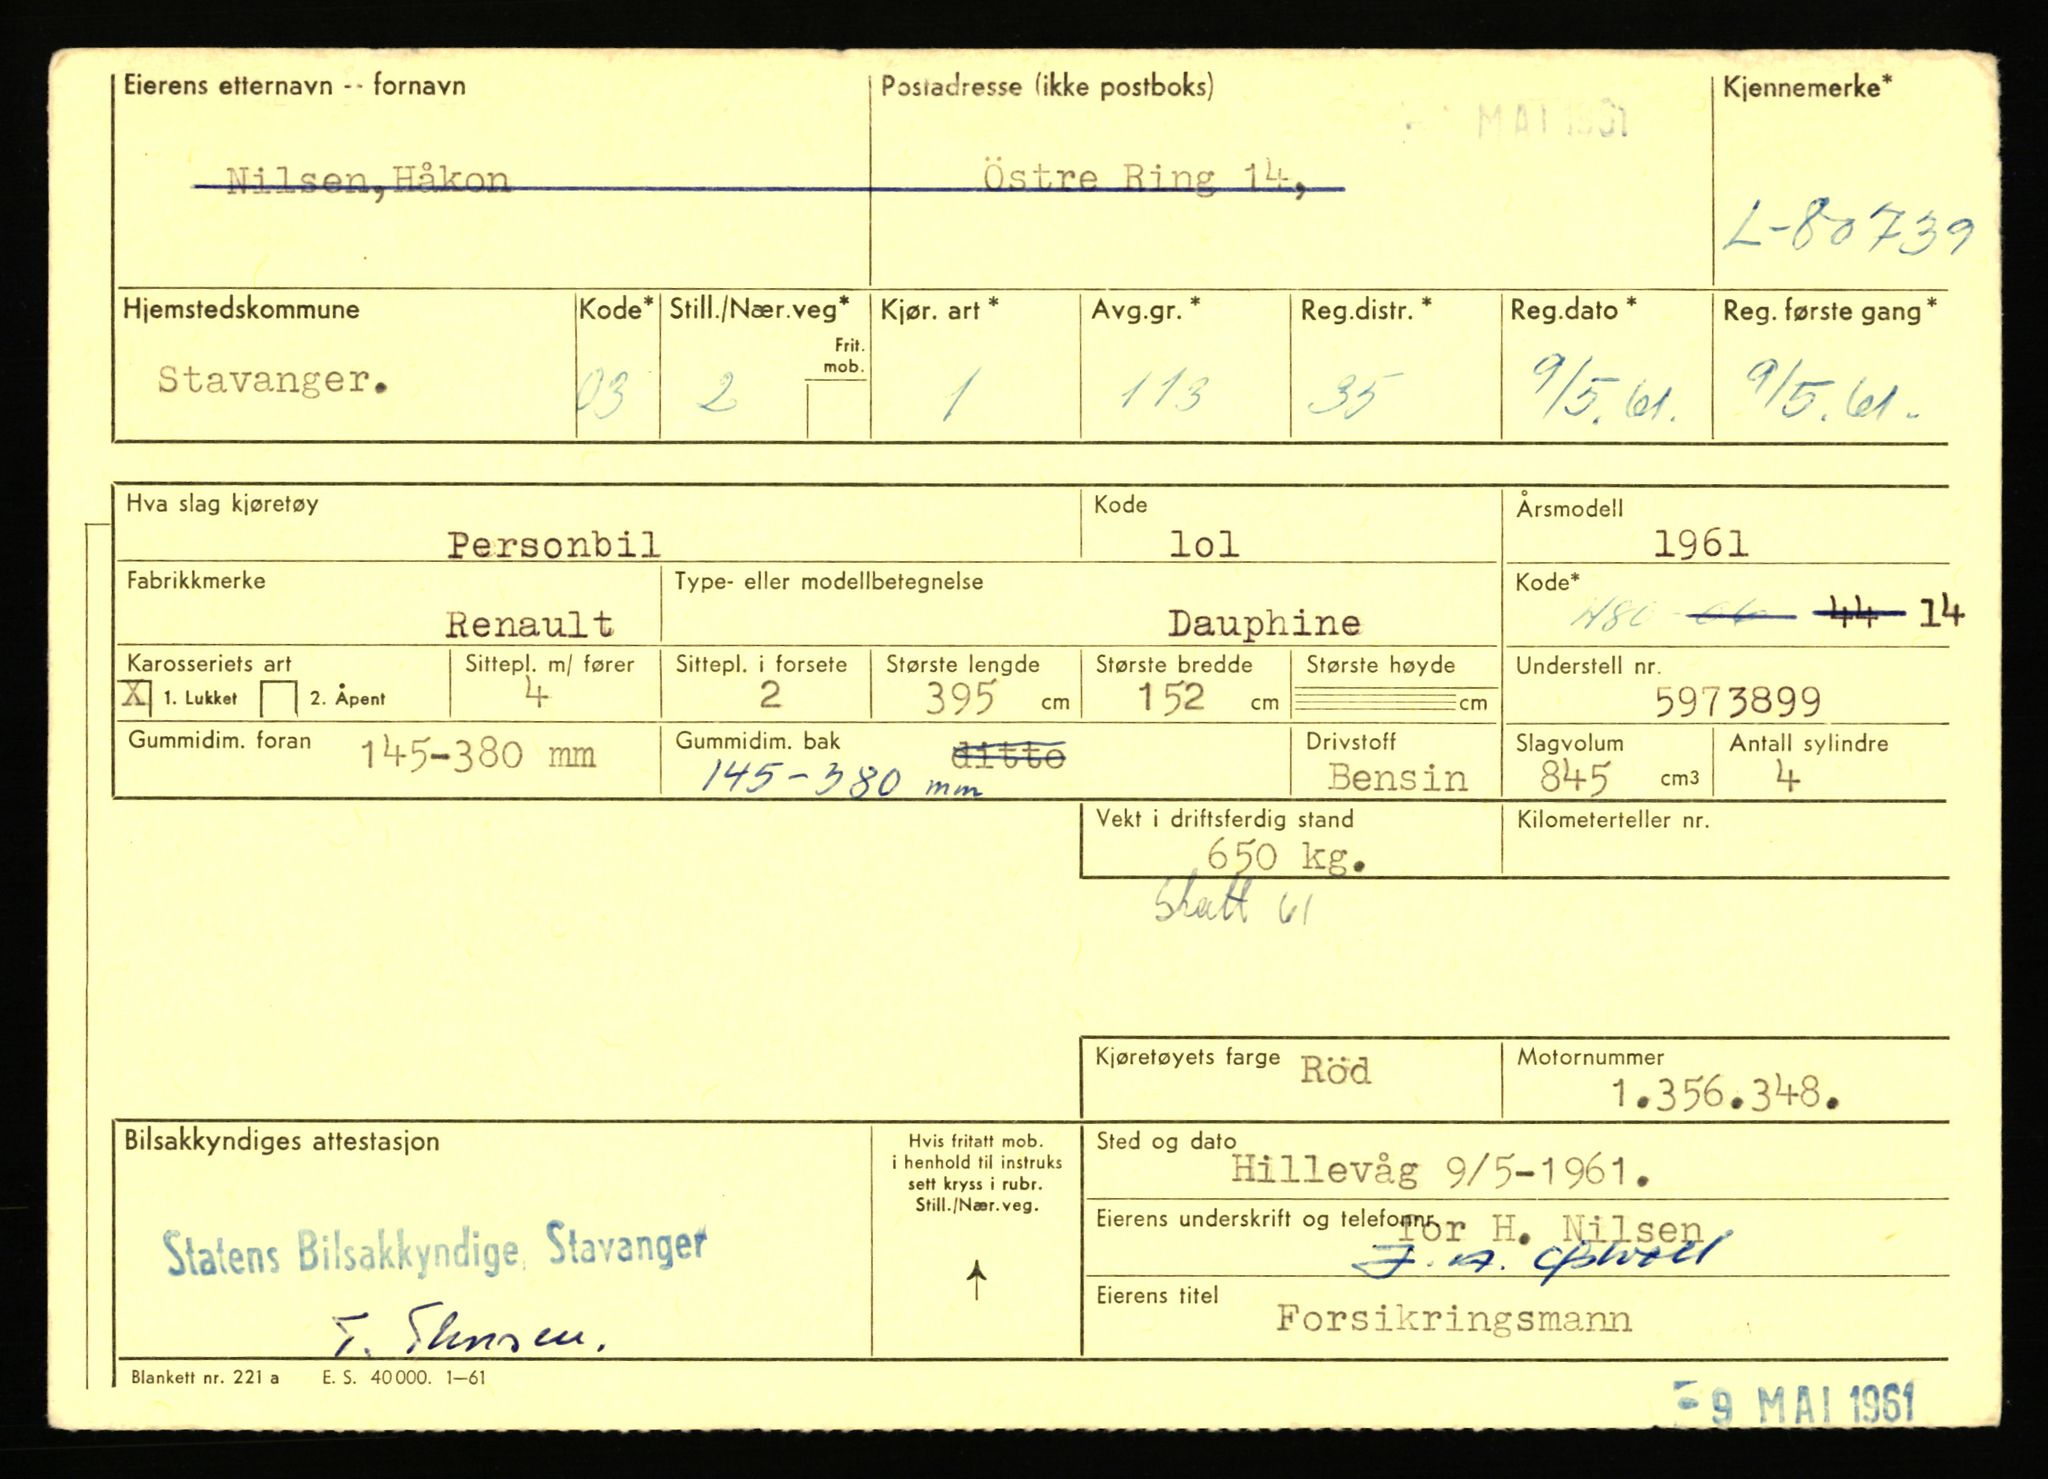 Eierens etternavn -- fornavn Postadresse (ikke postboks) Kjennemerke*
MAI 1961
Nilsen, Håkon Östre Ring 14,
L-80739
Hjemstedskommune Kode* Still./Nær.veg* Kjør. art* Avg.gr.* Reg.distr.* Reg.dato* Reg. første gang*
Frit. mob.
Stavanger. 03 2 1 113 35 9/5.61. 9/5.61.
Hva slag kjøretøy Kode Årsmodell
Personbil lol 1961
Fabrikkmerke Type- eller modellbetegnelse Kode*
Renault Dauphine 44 14
Karosseriets art Sittepl. m/ fører Sittepl. i forsete Største lengde Største bredde Største høyde Understell nr.
X 1. Lukket 2. Åpent 4 2 395 cm 152 cm cm 5973899
Gummidim. foran 145-380 mm Gummidim. bak ditto Drivstoff Slagvolum Antall sylindre
145-380 mm Bensin 845 cm3 4
Vekt i driftsferdig stand Kilometerteller nr.
650 kg.
Skatt 61
Kjøretøyets farge Röd Motornummer
1.356.348.
Bilsakkyndiges attestasjon Hvis fritatt mob. i henhold til instruks sett kryss i rubr. Still./Nær.veg. Sted og dato
Hillevåg 9/5-1961.
Eierens underskrift og telefonnr. Tor H. Nilsen
Statens Bilsakkyndige, Stavanger
Eierens titel Forsikringsmann
Blankett nr. 221 a E. S. 40 000. 1-61
-9 MAI 1961